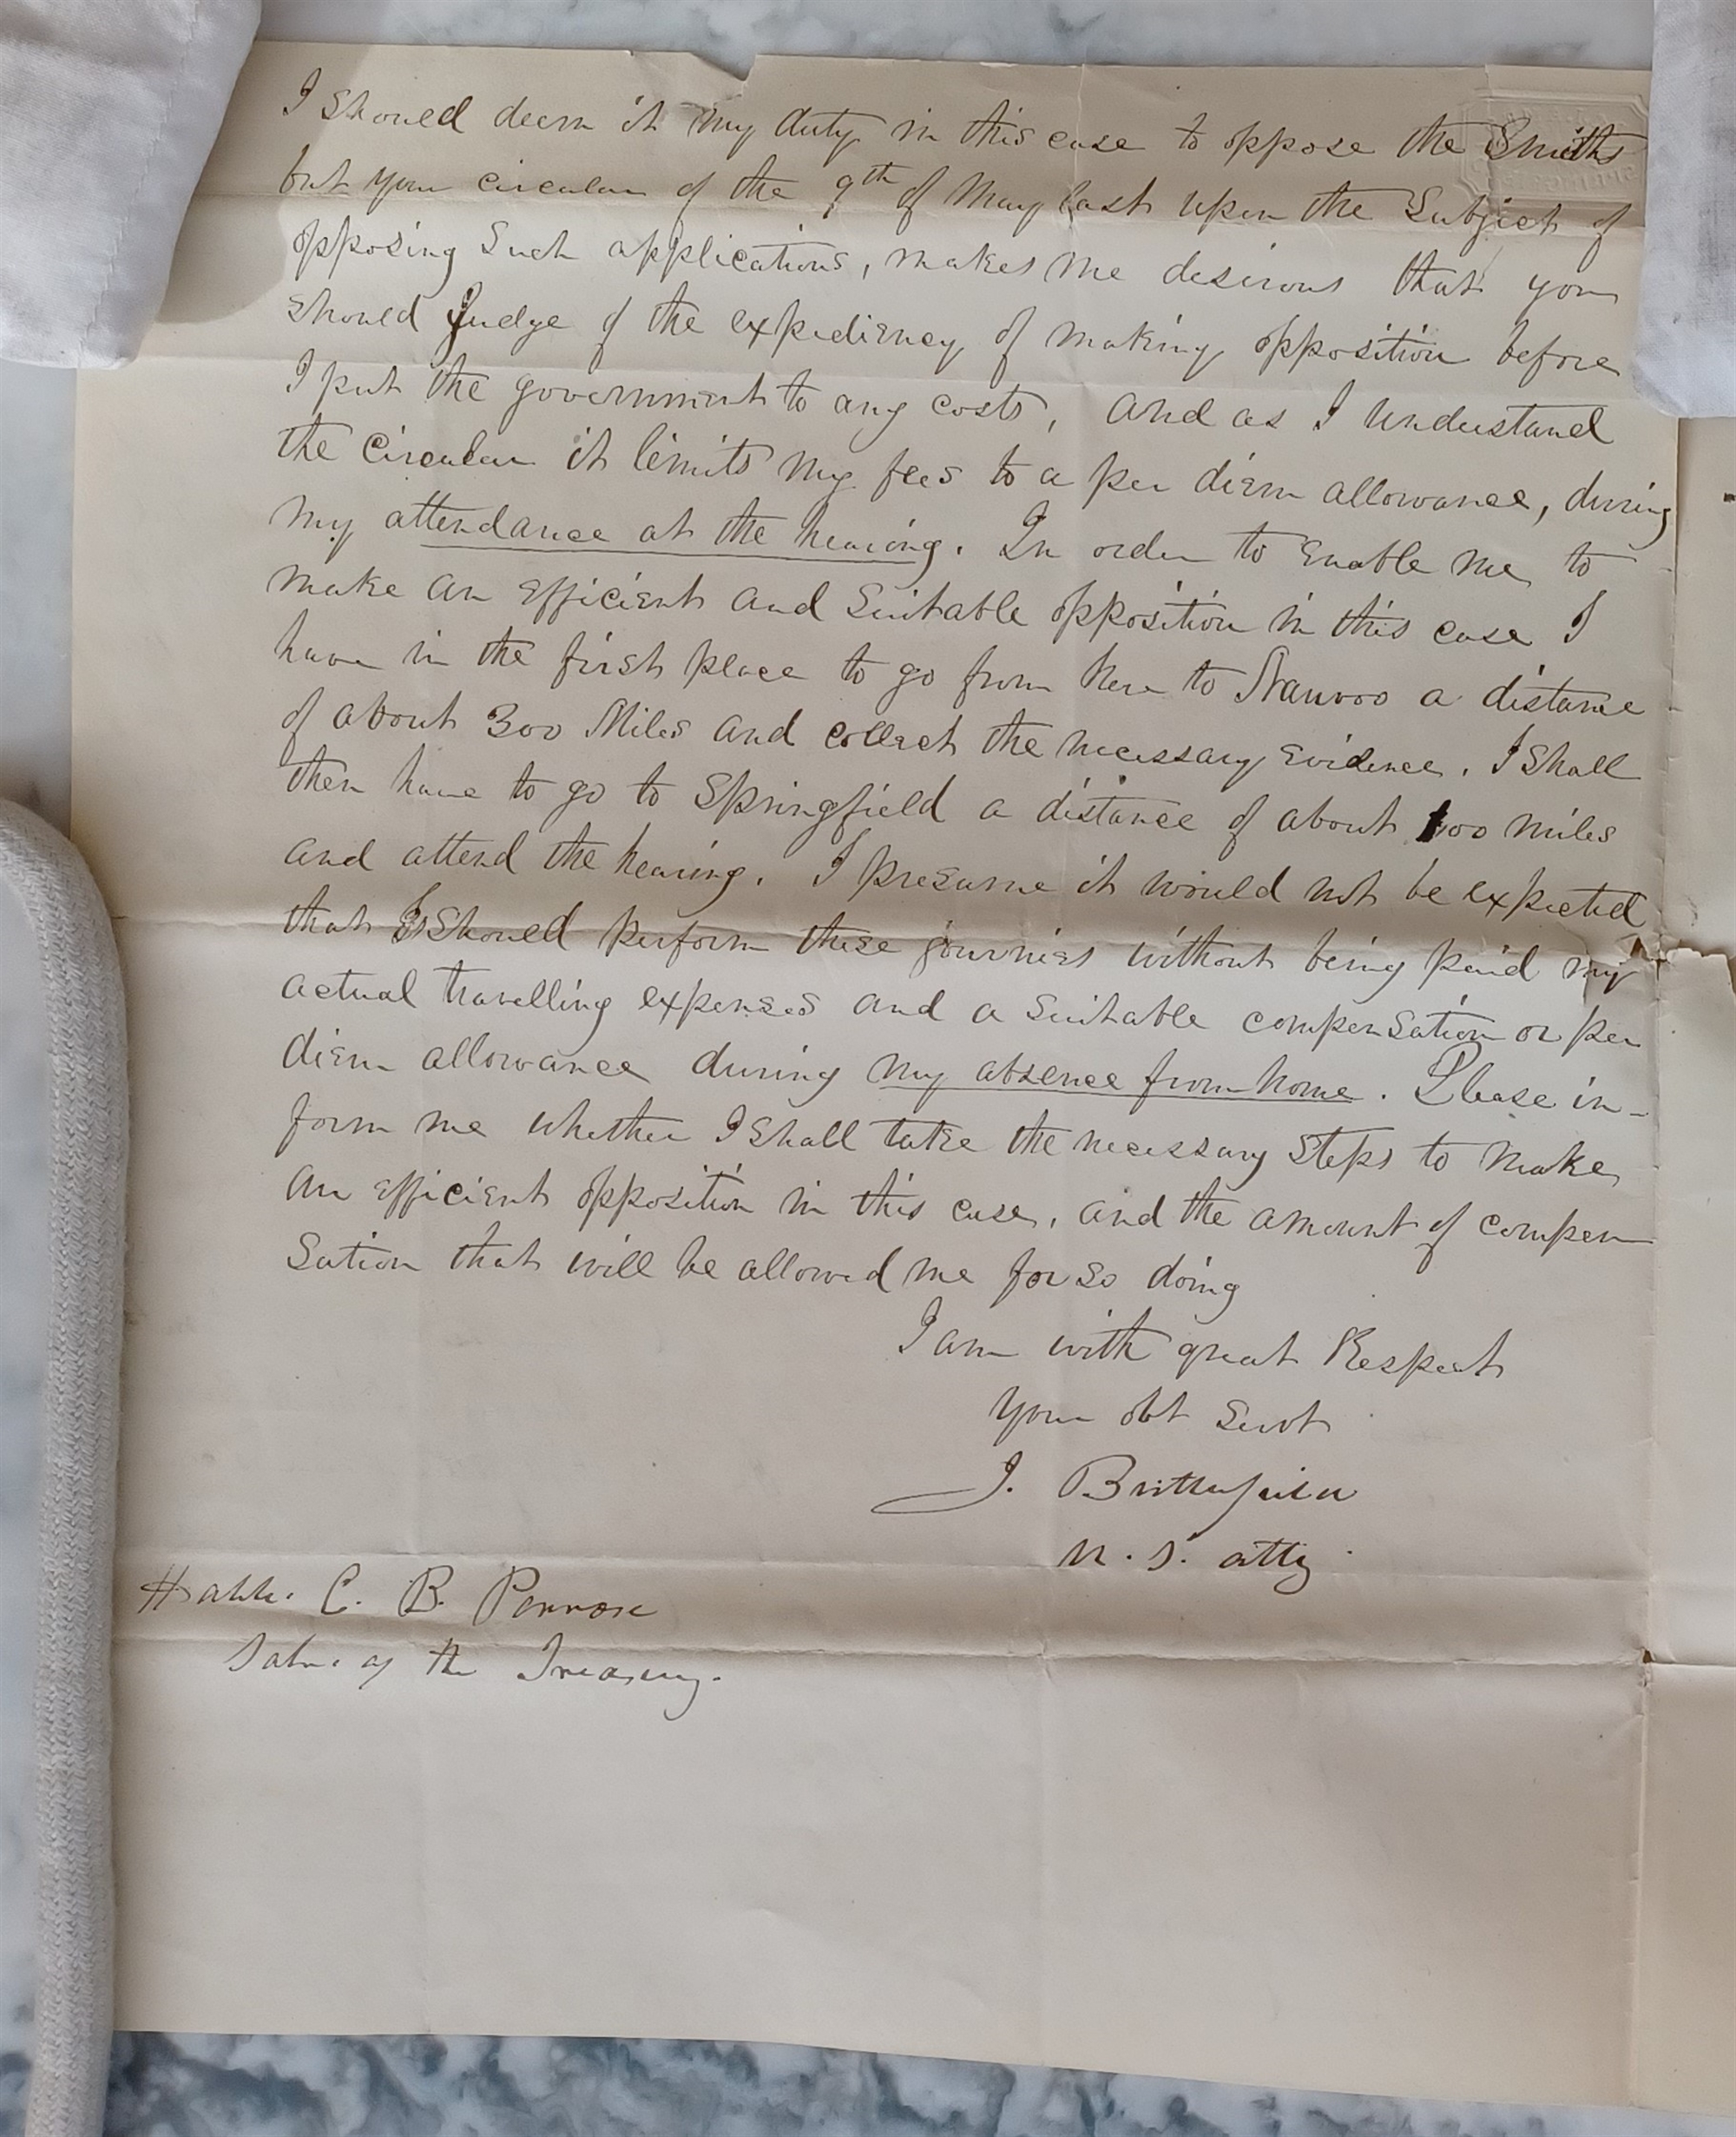 I Should deem it my duty in this case to oppose the Smiths
but your circular of the 9th of May last upon the Subject of
opposing Such applications, makes me desirous that you
should Judge of the expediency of making opposition before
I put the government to any costs, and as I understand
the circular it limits my fees to a per diem allowance, during
my attendance at the hearing. In order to enable me to
make an efficient and Suitable opposition in this case I
have in the first place to go from here to Nauvoo a distance
of about 300 Miles and collect the necessary evidence. I Shall
then have to go to Springfield a distance of about 100 miles
and attend the hearing. I presume it would not be expected
that I Should perform these journies without being paid my
actual travelling expenses and a Suitable compensation or per
diem allowance during my absence from home. Please in-
form me whether I Shall take the necessary Steps to make
an efficient opposition in this case, and the amount of compen
Sation that will be allowed me for So doing
I am with great Respect
Your obt Servt
J. Butterfield
U. S. atty
C. B. Penrose
Solr. of the Treasury.